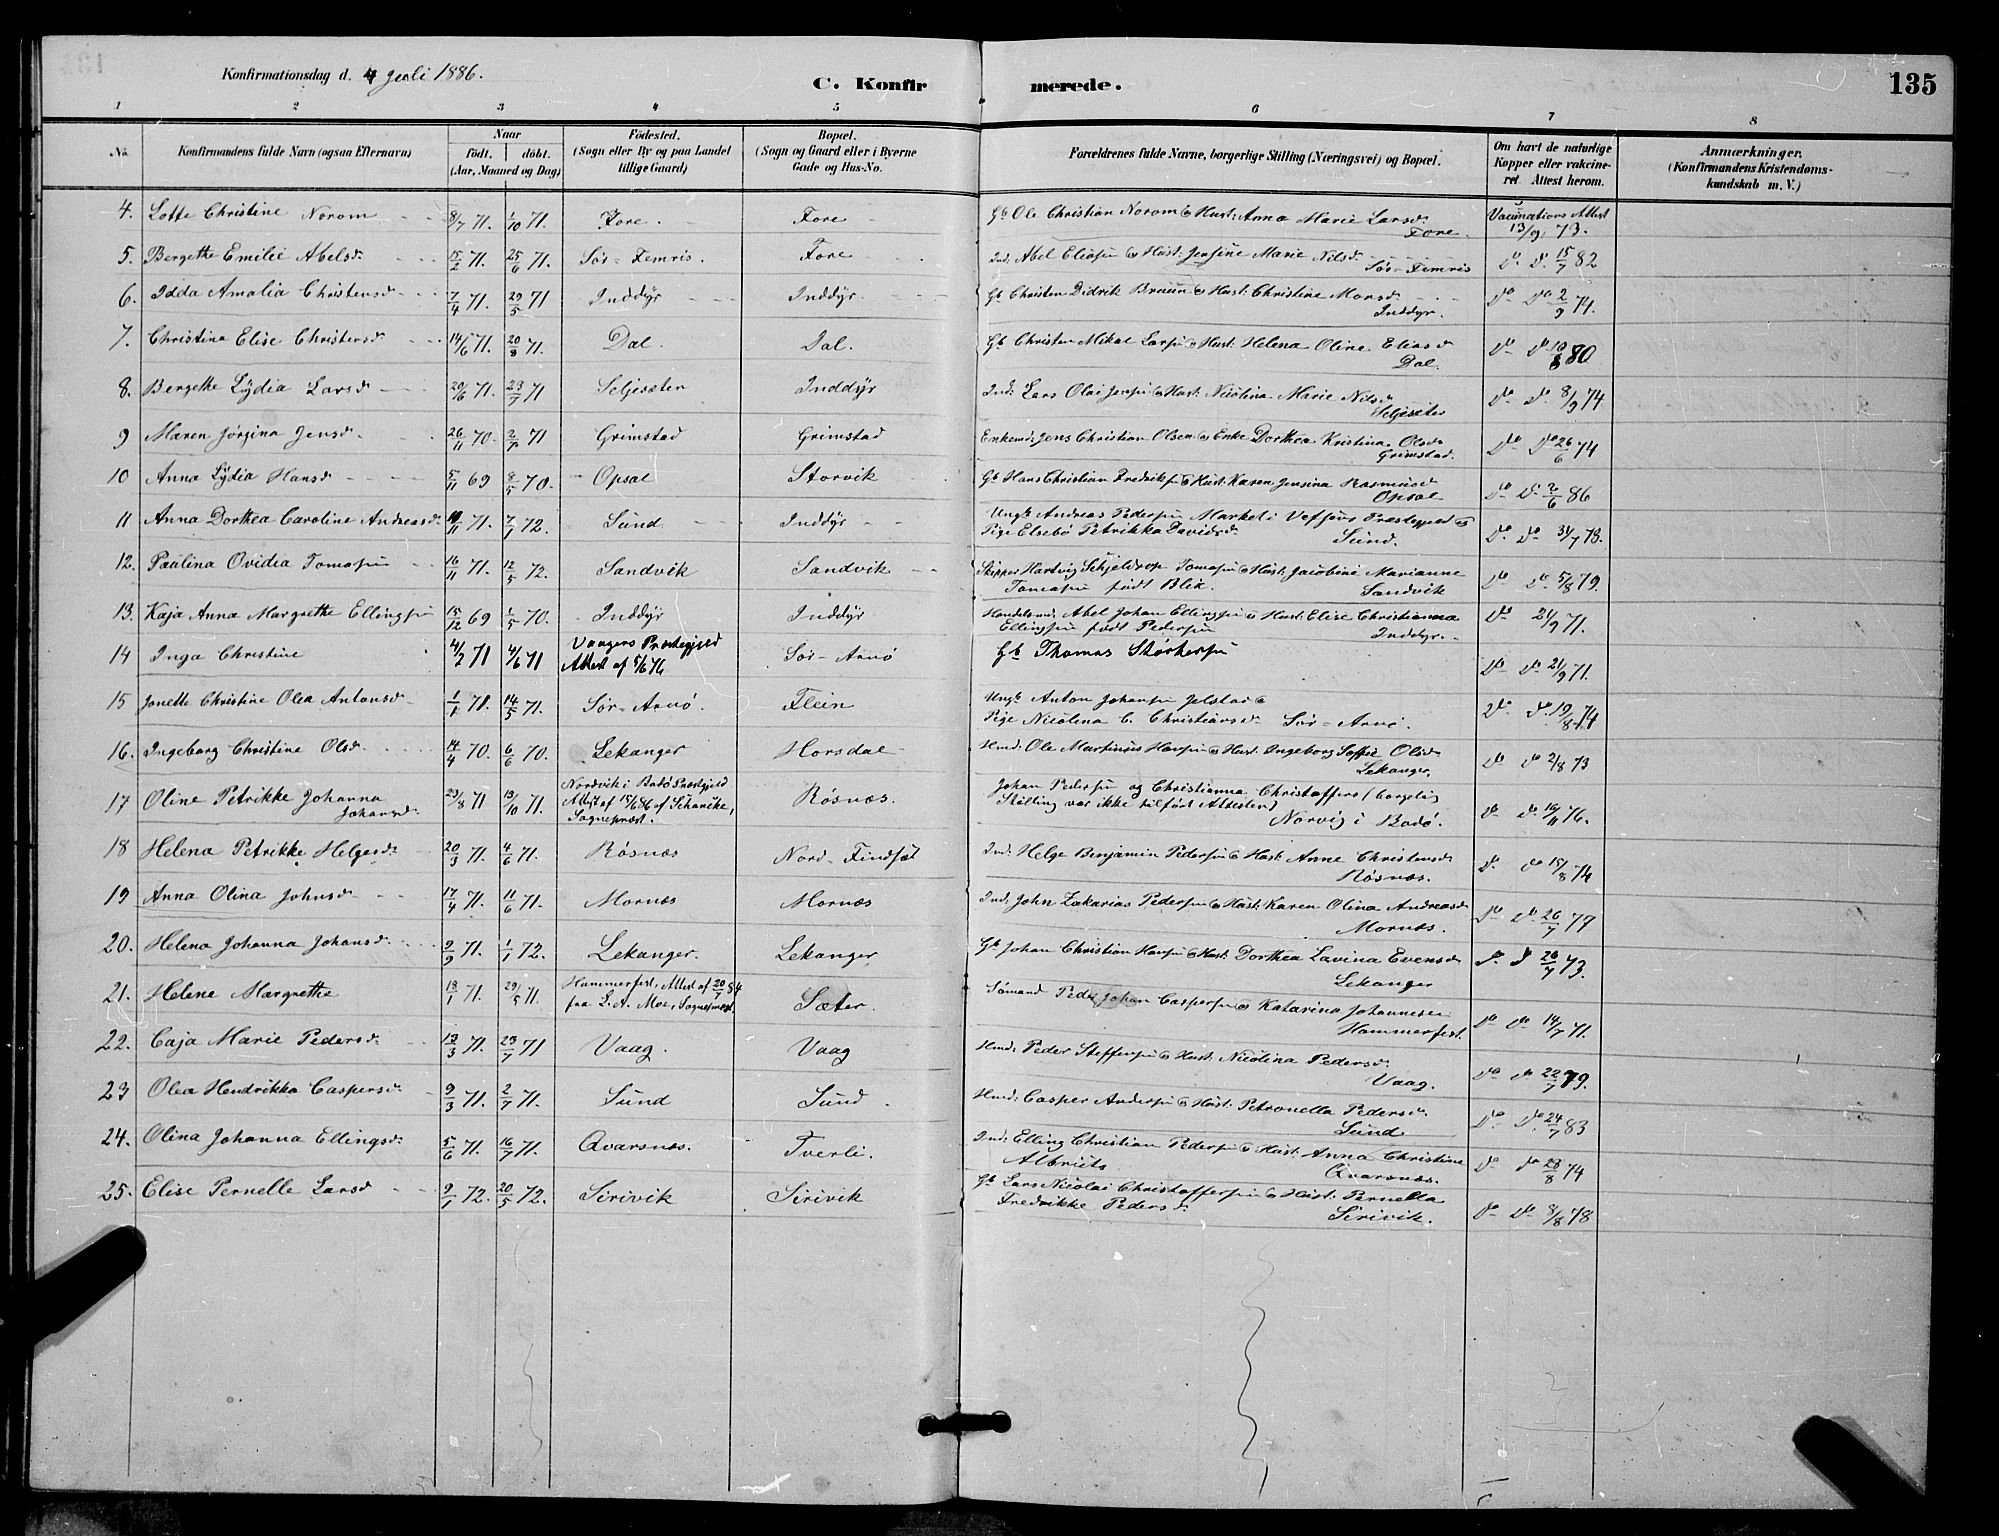 Konfirmationsdag d. 4 Juli 1886.
C. Konfirmerede.
135
1 2 3 4 5 6 7 8
No.
Konfirmandens fulde Navn (ogsaa Efternavn)
Naar
födt. döbt.
(Aar, Maaned og Dag)
Födested.
(Sogn eller By og paa Landet
tillige Gaard)
Bopæl.
(Sogn og Gaard eller i Byerne
Gade og Hus-No.
Forældrenes fulde Navne, borgerlige Stilling (Næringsvei) og Bopæl.
Om havt de naturlige
Kopper eller vakcine-
ret. Attest herom.
Anmærkninger.
(Konfirmandens Kristendoms-
kundskab m. V.)
4. Lotte Christine Norom 8/7 71. 1/10 71. Fore. Fore Gb Ole Christian Norom & Hust: Anna Marie Larsdr Vaccinations Attest
Fore. 13/9 73.
5. Bergette Emilie Abelsdr 15/2 71. 25/6 71. Sör-Femris. Fore Ind: Abel Eliasen & Hust: Jensine Marie Nilsdr
Sör-Femris Do Do 15/7 82
6. Idda Amalia Christensdr 7/4 71. 29/5 71 Inddyr Inddyr Gb Christen Didrik Bruun & Hust: Christine Monsdr
Inddyr. Do Do 2/9 74.
7. Christina Elise Christensdr 14/6 71. 20/8 71. Dal. Dal. Gb Christen Mikal Larsen & Hust: Helena Oline Eliasdr
Dal. Do Do 10/8 80
8. Bergette Lydia Larsdr 29/6 71. 23/7 71 Seljesæter Inddyr Ind: Lars Olai Jensen & Hust: Nicolina Marie Nilsdr
Seljesæter Do Do 8/9 74
9 Maren Jörgina Jensdr 26/11 70. 2/7 71 Grimstad Grimstad Enkemd: Jens Christian Olsen & Enke Dorthea Kristina Olsdr
Grimstad. Do Do 26/6 74
10 Anna Lydia Hansdr 5/11 69 8/5 70. Opsal Storvik Gb Hans Christian Fredriksen & Hust: Karen Jensina Rasmusdr
Opsal Do Do 2/6 86
11 Anna Dorthea Caroline Andreasdr 10/11 71. 7/7 72. Sund Inddyr Ungk: Andreas Pedersen Marken i Vefsens Præstegjeld &
Pige Elsebö Petrikka Davidsdr Sund. Do Do 31/7 73.
12. Paulina Ovidia Tomasen 16/11 71. 12/5 72. Sandvik Sandvik Skipper Hartvig Schjeldrop Tomasen & Hust: Jacobine Marianne
Tomasen födt Blix. Sandvik Do Do 5/8 79.
13. Kaja Anna Margrethe Ellingsen 15/12 69 1/5 70. Inddyr Inddyr Handelsmd: Abel Johan Ellingsen & Hust: Elise Christianna
Ellingsen födt Pedersen Inddyr. Do 21/9 71.
14 Inga Christine 4/2 71 4/6 71 Vaagens Præstegjeld
Attest af 5/6 76 Sör-Arnö Gb Thomas Störkersen Do Do 21/9 71.
15 Jonette Christine Olea Antonsdr 1/1 71. 14/5 71. Sör-Arnö. Flein Ungk: Anton Johansen Jelstad &
Pige Nicolena C. Christiansdr Sör-Arnö. Do Do 19/8 74
16. Ingeborg Christine Olsdr 14/4 70. 6/6 70. Lekanger Horsdal Hmd: Ole Martinus Hansen & Hust: Ingeborg Soffie Olsdr
Lekanger. Do Do 2/8 73
17 Oline Petrikke Johanna
Johansdr 23/8 71 13/10 71. Nordvik i Bodö Præstegjeld
Attest af 15/6 86 af Schanche,
Sognepræst. Rösnæs. Johan Pedersen og Christianna Christoffers (borgerlig
Stilling var ikke tilfört Attesten)
Norvig i Bodö. Do Do 16/11 76.
18 Helena Petrikke Helgesdr 20/3 71. 4/6 71. Rösnæs Nord-Findset Ind: Helge Benjamin Pedersen & Hust: Anne Christensdr
Rösnæs. Do Do 15/8 74
19 Anna Olina Johnsdr 17/4 71. 11/6 71. Mornæs Mornæs Ind: John Zakarias Pedersen & Hust: Karen Olina Andreasdr
Mornæs. Do Do 26/7 79
20. Helena Johanna Johansdr 9/9 71. 1/1 72. Lekanger. Lekanger Gb Johan Christian Hansen & Hust: Dorthea Lavina Evensdr
Lekanger Do Do 26/7 73.
21. Helene Margrethe 18/1 71. 29/5 71. Hammerfest, Attest af 20/7 84
fra L. A. Moe, Sognepræst. Sæter. Sömand Peder Johan Caspersen & Katarina Johannesen
Hammerfest. Do Do 14/7 71.
22. Caja Marie Pedersdr 12/3 71. 23/7 71 Vaag. Vaag Hmd: Peder Steffensen & Hust: Nicolina Pedersdr
Vaag. Do Do 22/7 79.
23 Olea Hendrikka Caspersdr 9/3 71. 2/7 71. Sund Sund. Hmd: Casper Andersen & Hust: Petronella Pedersdr
Sund Do Do 24/7 83
24. Olina Johanna Ellingsdr 5/6 71. 16/7 71. Qvarsnæs. Tverli. Ind: Elling Christian Pedersen & Hust: Anna Christine
Albrigts Qvarsnæs. Do Do 28/8 74
25. Elise Pernelle Larsdr 9/1 72. 20/5 72. Sirivik Sirivik Gb Lars Nicolai Christoffersen & Hust: Pernella
Fredrikke Pedersdr Sirivik. Do Do 8/8 78